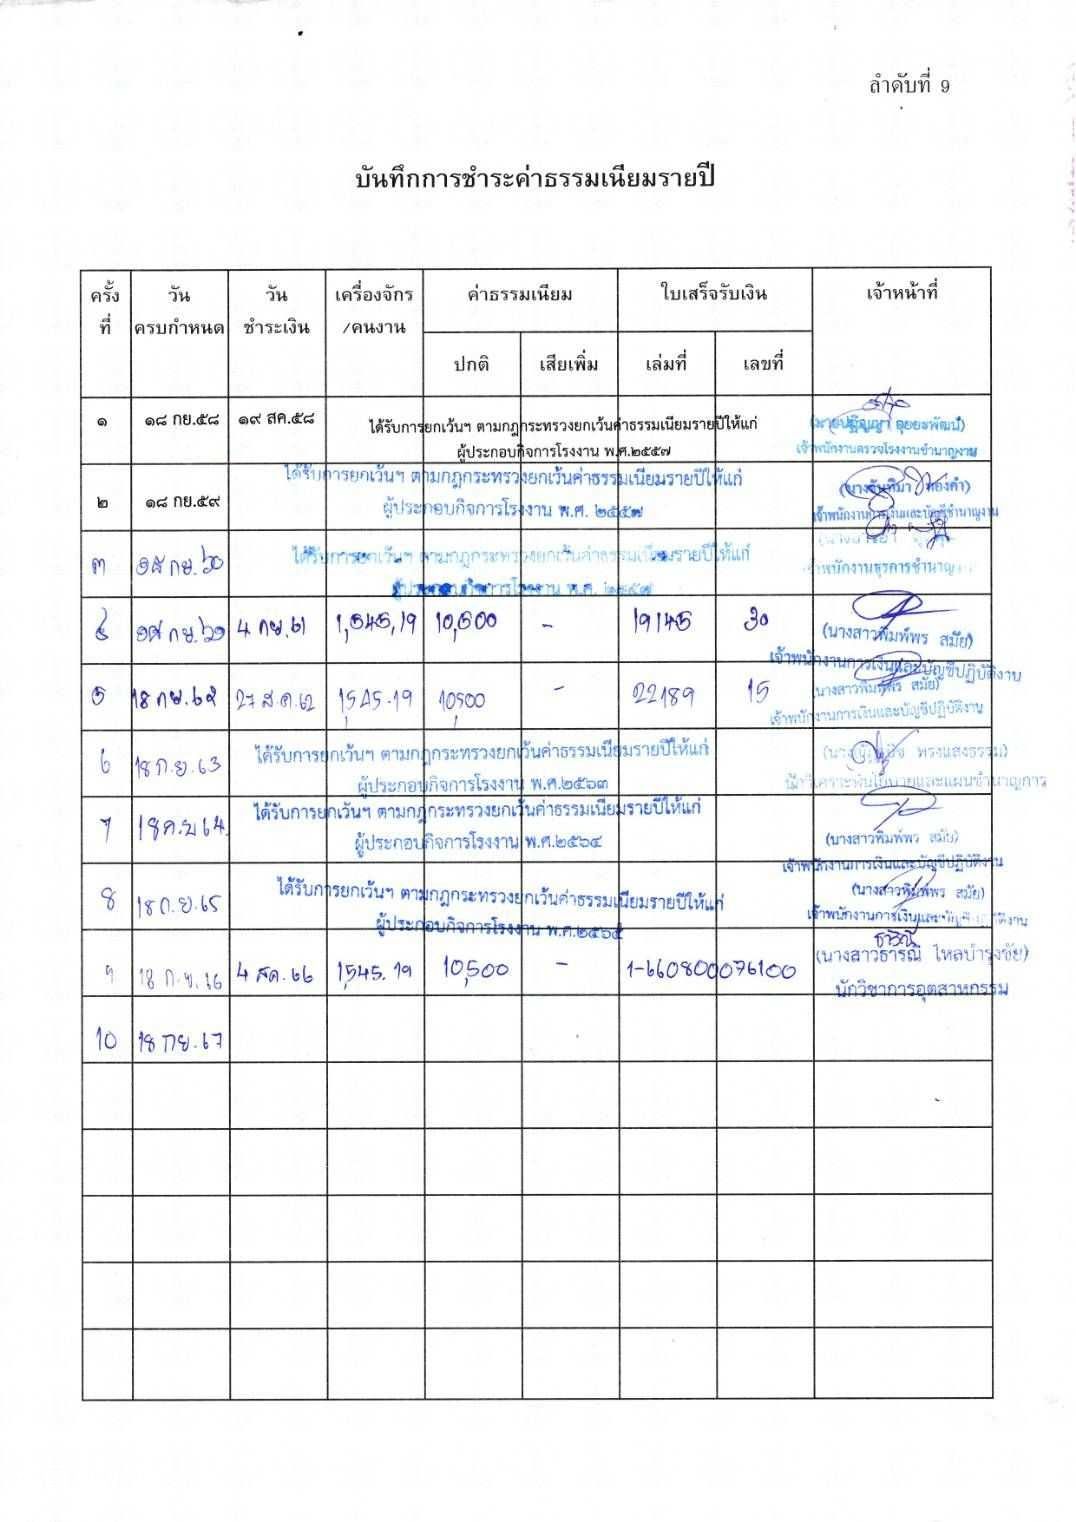 ลำดับที่ 9
บันทึกการชำระค่าธรรมเนียมรายปี
ครั้งที่ วันครบกำหนด วันชำระเงิน เครื่องจักร/คนงาน ค่าธรรมเนียม ใบเสร็จรับเงิน เจ้าหน้าที่
ปกติ เสียเพิ่ม เล่มที่ เลขที่
๑ ๑๘ กย.๕๘ ๑๙ สค.๕๘ ได้รับการยกเว้นฯ ตามกฎกระทรวงยกเว้นค่าธรรมเนียมรายปีให้แก่
ผู้ประกอบกิจการโรงงาน พ.ศ.๒๕๕๗
เจ้าพนักงานตรวจโรงงานชำนาญงาน
๒ ๑๘ กย.๕๙ ได้รับการยกเว้นฯ ตามกฎกระทรวงยกเว้นค่าธรรมเนียมรายปีให้แก่
ผู้ประกอบกิจการโรงงาน พ.ศ. ๒๕๕๗
เจ้าพนักงานการเงินและบัญชีชำนาญงาน
๓ ๑๘ กย. ๖๐ ได้รับการยกเว้นฯ ตามกฎกระทรวงยกเว้นค่าธรรมเนียมรายปีให้แก่
ผู้ประกอบกิจการโรงงาน พ.ศ. ๒๕๕๗
เจ้าพนักงานธุรการชำนาญ
๔ ๑๘ กย. ๖๑ 4 กย. 61 1,545.19 10,500 - 19145 30
(นางสาวพิมพ์พร สมัย)
เจ้าพนักงานการเงินและบัญชีปฏิบัติงาน
5 18 กย. 62 27 ส.ค. 62 1,545.19 10,500 - 22189 15
(นางสาวพิมพ์พร สมัย)
เจ้าพนักงานการเงินและบัญชีปฏิบัติงาน
6 18 ก.ย. 63 ได้รับการยกเว้นฯ ตามกฎกระทรวงยกเว้นค่าธรรมเนียมรายปีให้แก่
ทรงแสงธรรม)
ผู้ประกอบกิจการโรงงาน พ.ศ.๒๕๖๓
นักวิเคราะห์นโยบายและแผนชำนาญการ
7 18 ก.ย 64. ได้รับการยกเว้นฯ ตามกฎกระทรวงยกเว้นค่าธรรมเนียมรายปีให้แก่
ผู้ประกอบกิจการโรงงาน พ.ศ.๒๕๖๔
(นางสาวพิมพ์พร สมัย)
เจ้าพนักงานการเงินและบัญชีปฏิบัติงาน
8 18 ก.ย. 65 ได้รับการยกเว้นฯ ตามกฎกระทรวงยกเว้นค่าธรรมเนียมรายปีให้แก่
ผู้ประกอบกิจการโรงงาน พ.ศ.๒๕๖๕
(นางสาวพิมพ์พร สมัย)
เจ้าพนักงานการเงินและบัญชีปฏิบัติงาน
9 18 ก.ย. 66 4 สค. 66 1,545.19 10,500 - 1-660800076100
ธารณี
(นางสาวธารณี ไหลบำรุงชัย)
นักวิชาการอุตสาหกรรม
10 18 กย. 67